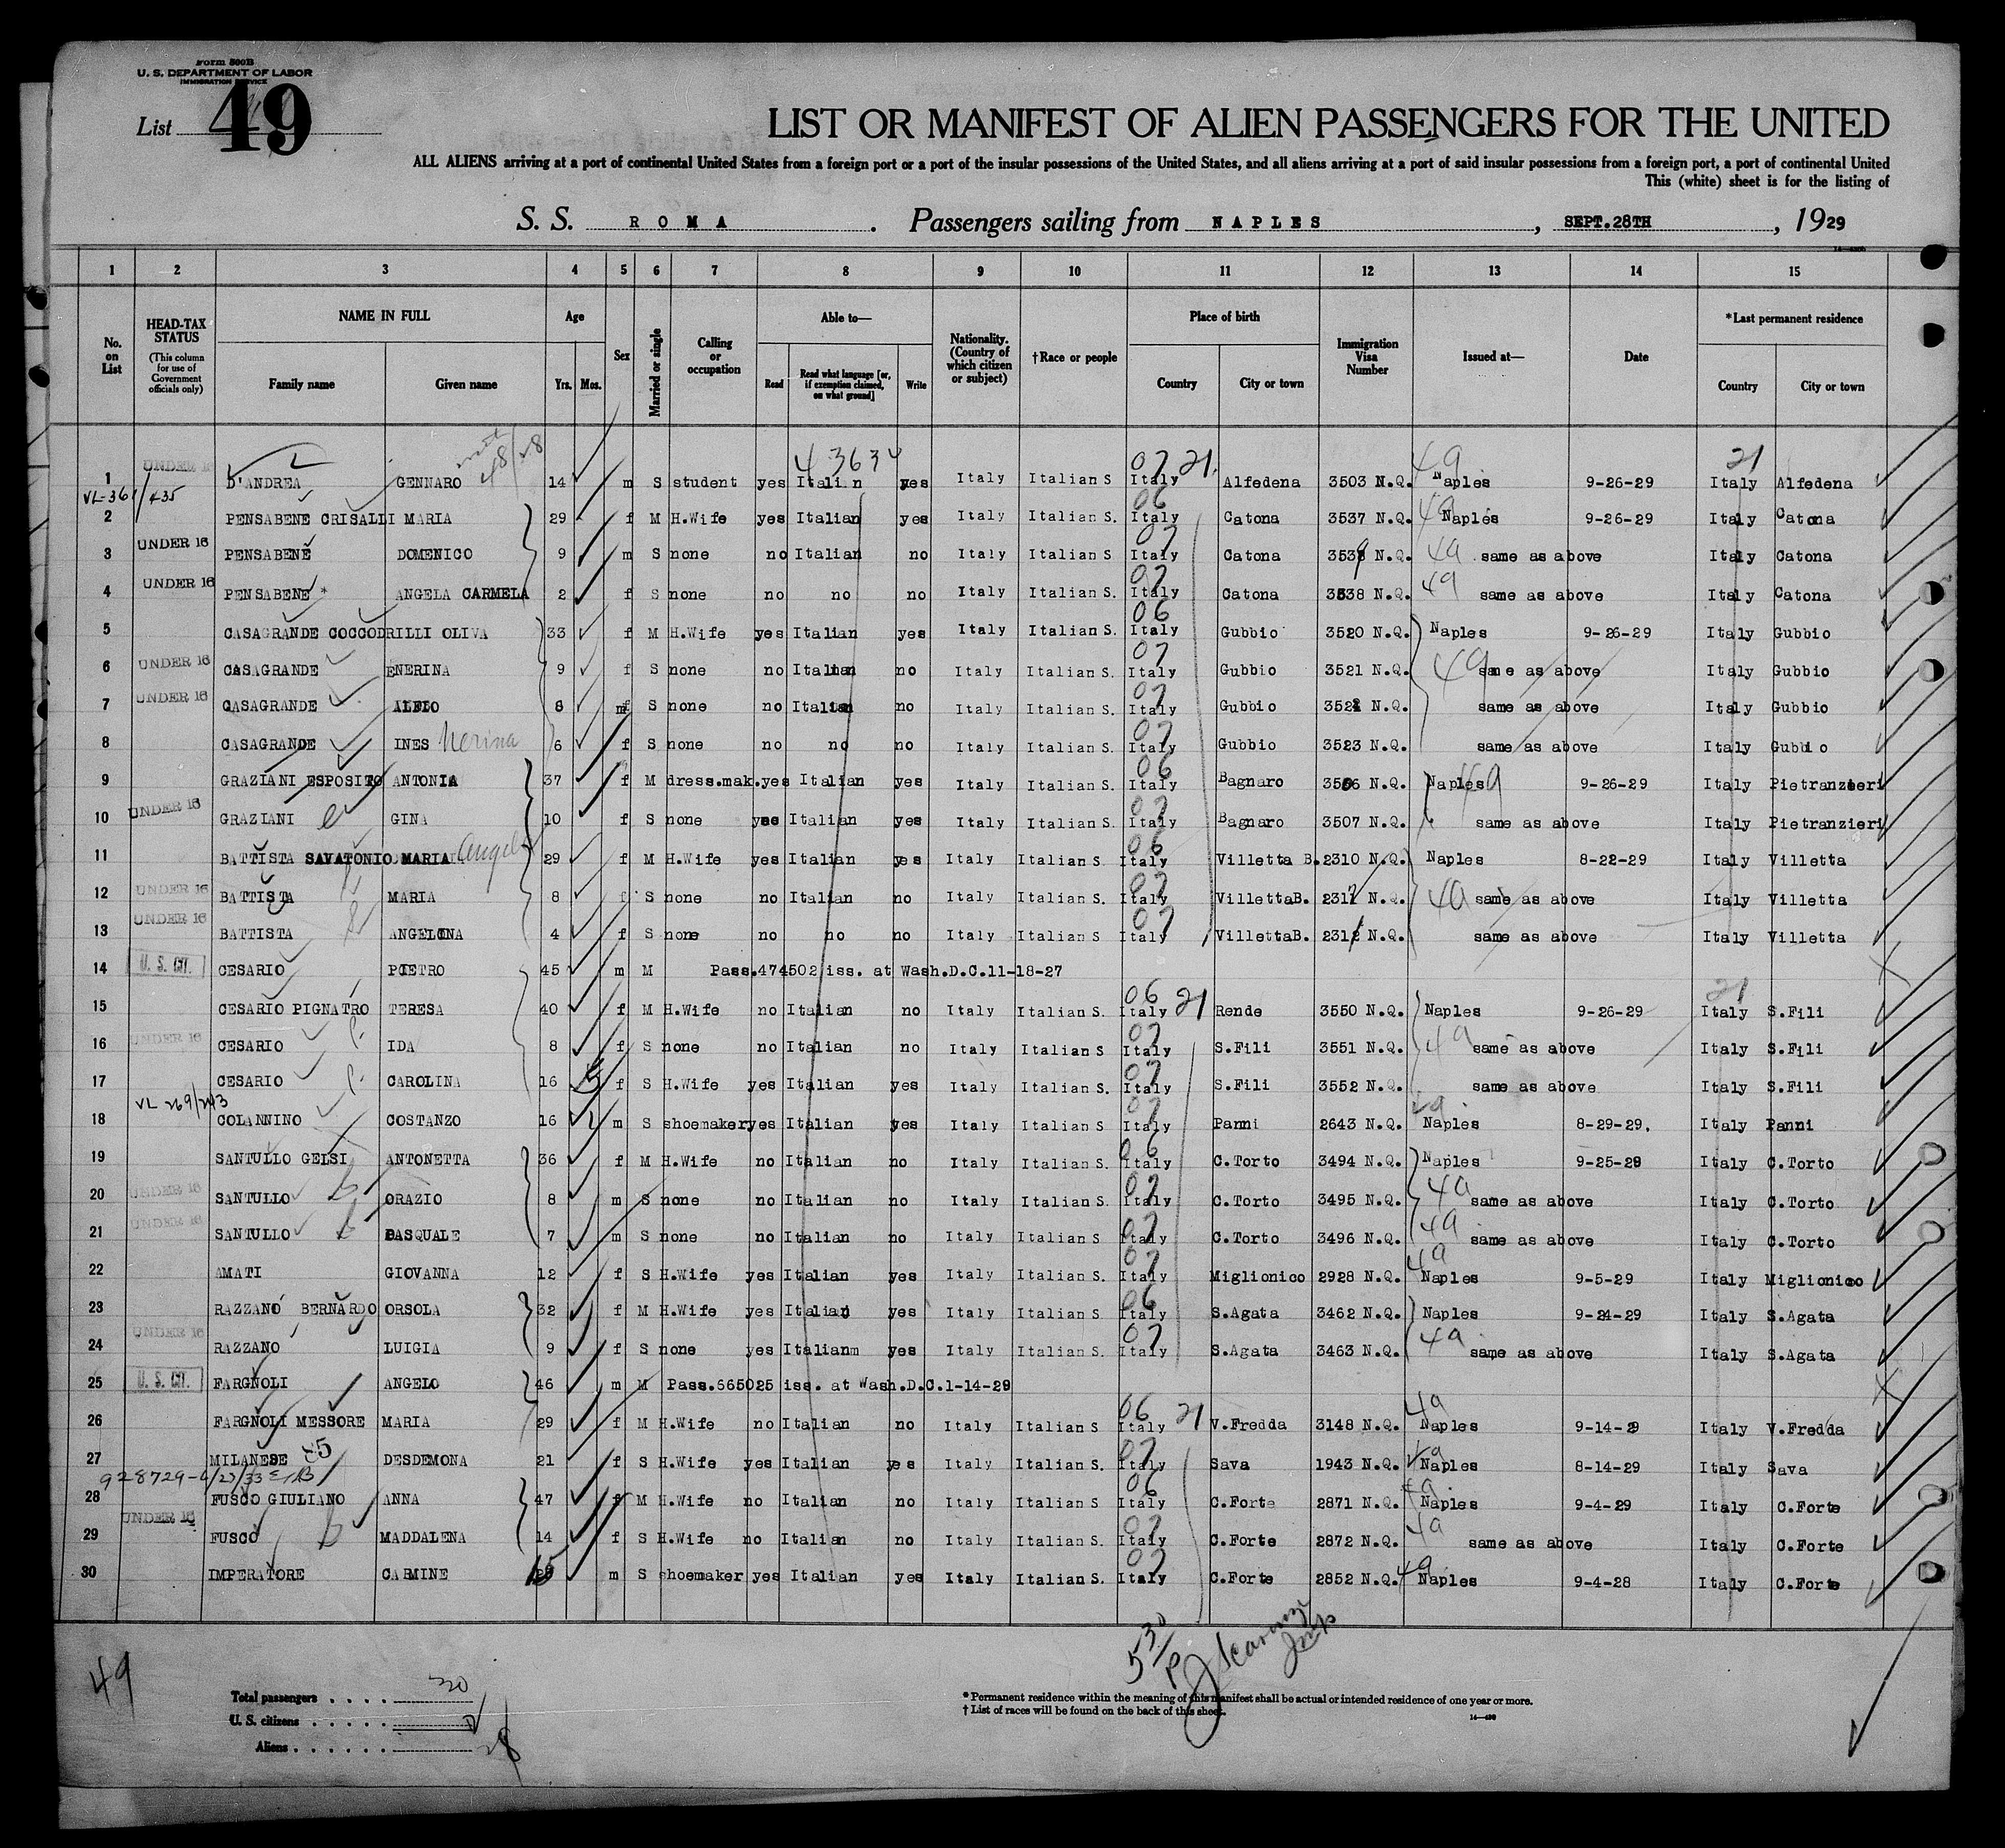 Form 500B
U. S. DEPARTMENT OF LABOR
IMMIGRATION SERVICE
List 49
LIST OR MANIFEST OF ALIEN PASSENGERS FOR THE UNITED
ALL ALIENS arriving at a port of continental United States from a foreign port or a port of the insular possessions of the United States, and all aliens arriving at a port of said insular possessions from a foreign port, a port of continental United
This (white) sheet is for the listing of
S. S. ROMA . Passengers sailing from NAPLES , SEPT.28TH , 1929
1 2 3 4 5 6 7 8 9 10 11 12 13 14 15
No. on List HEAD-TAX STATUS (This column for use of Government officials only) NAME IN FULL Family name Given name Age Yrs. Mos. Sex Married or single Calling or occupation Able to— Read Read what language [or, if exemption claimed, on what ground] Write Nationality. (Country of which citizen or subject) †Race or people Place of birth Country City or town Immigration Visa Number Issued at— Date *Last permanent residence Country City or town
1 UNDER 16 D'ANDREA GENNARO 14 m S student yes Italin yes Italy Italian S Italy Alfedena 3503 N.Q. Naples 9-26-29 Italy Alfedena
2 PENSABENE CRISALLI MARIA 29 f M H.Wife yes Italian yes Italy Italian S. Italy Catona 3537 N.Q. Naples 9-26-29 Italy Catona
3 UNDER 16 PENSABENE DOMENICO 9 m S none no Italian no Italy Italian S Italy Catona N.Q. same as above Italy Catona
4 UNDER 16 PENSABENE * ANGELA CARMELA 2 f S none no no no Italy Italian S. Italy Catona 3538 N.Q. same as above Italy Catona
5 CASAGRANDE COCCODRILLI OLIVA 33 f M H.Wife yes Italian yes Italy Italian S. Italy Gubbio 3520 N.Q. Naples 9-26-29 Italy Gubbio
6 UNDER 16 CASAGRANDE ENERINA 9 f S none no Italian no Italy Italian S. Italy Gubbio 3521 N.Q. same as above Italy Gubbio
7 UNDER 16 CASAGRANDE 8 m S none no Italian no Italy Italian S. Italy Gubbio 3522 N.Q. same as above Italy Gubbio
8 CASAGRANDE INES Nerina 6 f S none no no no Italy Italian S. Italy Gubbio 3523 N.Q. same as above Italy Gubbio
9 GRAZIANI ESPOSITO ANTONIA 37 f M dress.mak. yes Italian yes Italy Italian S. Italy Bagnaro 3506 N.Q. Naples 9-26-29 Italy Pietranzieri
10 UNDER 16 GRAZIANI GINA 10 f S none yes Italian yes Italy Italian S. Italy Bagnaro 3507 N.Q. same as above Italy Pietranzieri
11 BATTISTA SAVATONIO MARIA Angela 29 f M H.Wife yes Italian yes Italy Italian S. Italy Villetta B. 2310 N.Q. Naples 8-22-29 Italy Villetta
12 UNDER 16 BATTISTA MARIA 8 f S none no Italian no Italy Italian S. Italy VillettaB. N.Q. same as above Italy Villetta
13 UNDER 16 BATTISTA ANGELINA 4 f S none no no no Italy Italian S Italy VillettaB. 2312 N.Q. same as above Italy Villetta
14 U. S. CIT. CESARIO PIETRO 45 m M Pass.474502 iss. at Wash.D.C.11-18-27
15 CESARIO PIGNATRO TERESA 40 f M H.Wife no Italian no Italy Italian S. Italy Rende 3550 N.Q. Naples 9-26-29 Italy S.Fili
16 UNDER 16 CESARIO IDA 8 f S none no Italian no Italy Italian S Italy S.Fili 3551 N.Q. same as above Italy S.Fili
17 CESARIO CAROLINA 16 f S H.Wife yes Italian yes Italy Italian S. Italy S.Fili 3552 N.Q. same as above Italy S.Fili
18 COLANNINO COSTANZO 16 m S shoemaker yes Italian yes Italy Italian S Italy Panni 2643 N.Q. Naples 8-29-29. Italy Panni
19 SANTULLO GELSI ANTONETTA 36 f M H.Wife no Italian no Italy Italian S. Italy C.Torto 3494 N.Q. Naples 9-25-29 Italy C.Torto
20 UNDER 16 SANTULLO ORAZIO 8 m S none no Italian no Italy Italian S. Italy C.Torto 3495 N.Q. same as above Italy C.Torto
21 UNDER 16 SANTULLO PASQUALE 7 m S none no Italian no Italy Italian S Italy C.Torto 3496 N.Q. same as above Italy C.Torto
22 AMATI GIOVANNA 12 f S H.Wife yes Italian yes Italy Italian S. Italy Miglionico 2928 N.Q. Naples 9-5-29 Italy Miglionico
23 RAZZANO BERNARDO ORSOLA 32 f M H.Wife yes Italian yes Italy Italian S. Italy S.Agata 3462 N.Q. Naples 9-24-29 Italy S.Agata
24 UNDER 16 RAZZANO LUIGIA 9 f S none yes Italianm yes Italy Italian S. Italy S.Agata 3463 N.Q. same as above Italy S.Agata
25 U. S. CIT. FARGNOLI ANGELO 46 m M Pass.665025 iss. at Wash.D.C.1-14-29
26 FARGNOLI MESSORE MARIA 29 f M H.Wife no Italian no Italy Italian S Italy V.Fredda 3148 N.Q. Naples 9-14-29 Italy V.Fredda
27 MILANESE DESDEMONA 21 f S H.Wife yes Italian yes Italy Italian S. Italy Sava 1943 N.Q. Naples 8-14-29 Italy Sava
28 FUSCO GIULIANO ANNA 47 f M H.Wife no Italian no Italy Italian S Italy C.Forte 2871 N.Q. Naples 9-4-29 Italy C.Forte
29 UNDER 16 FUSCO MADDALENA 14 f S H.Wife no Italian no Italy Italian S. Italy C.Forte 2872 N.Q. same as above Italy C.Forte
30 IMPERATORE CARMINE m S shoemaker yes Italian yes Italy Italian S. Italy C.Forte 2852 N.Q. Naples 9-4-28 Italy C.Forte
49
Total passengers . . . . 30
U. S. citizens . . . . . 2
Aliens . . . . . . 28
* Permanent residence within the meaning of this manifest shall be actual or intended residence of one year or more.
† List of races will be found on the back of this sheet.